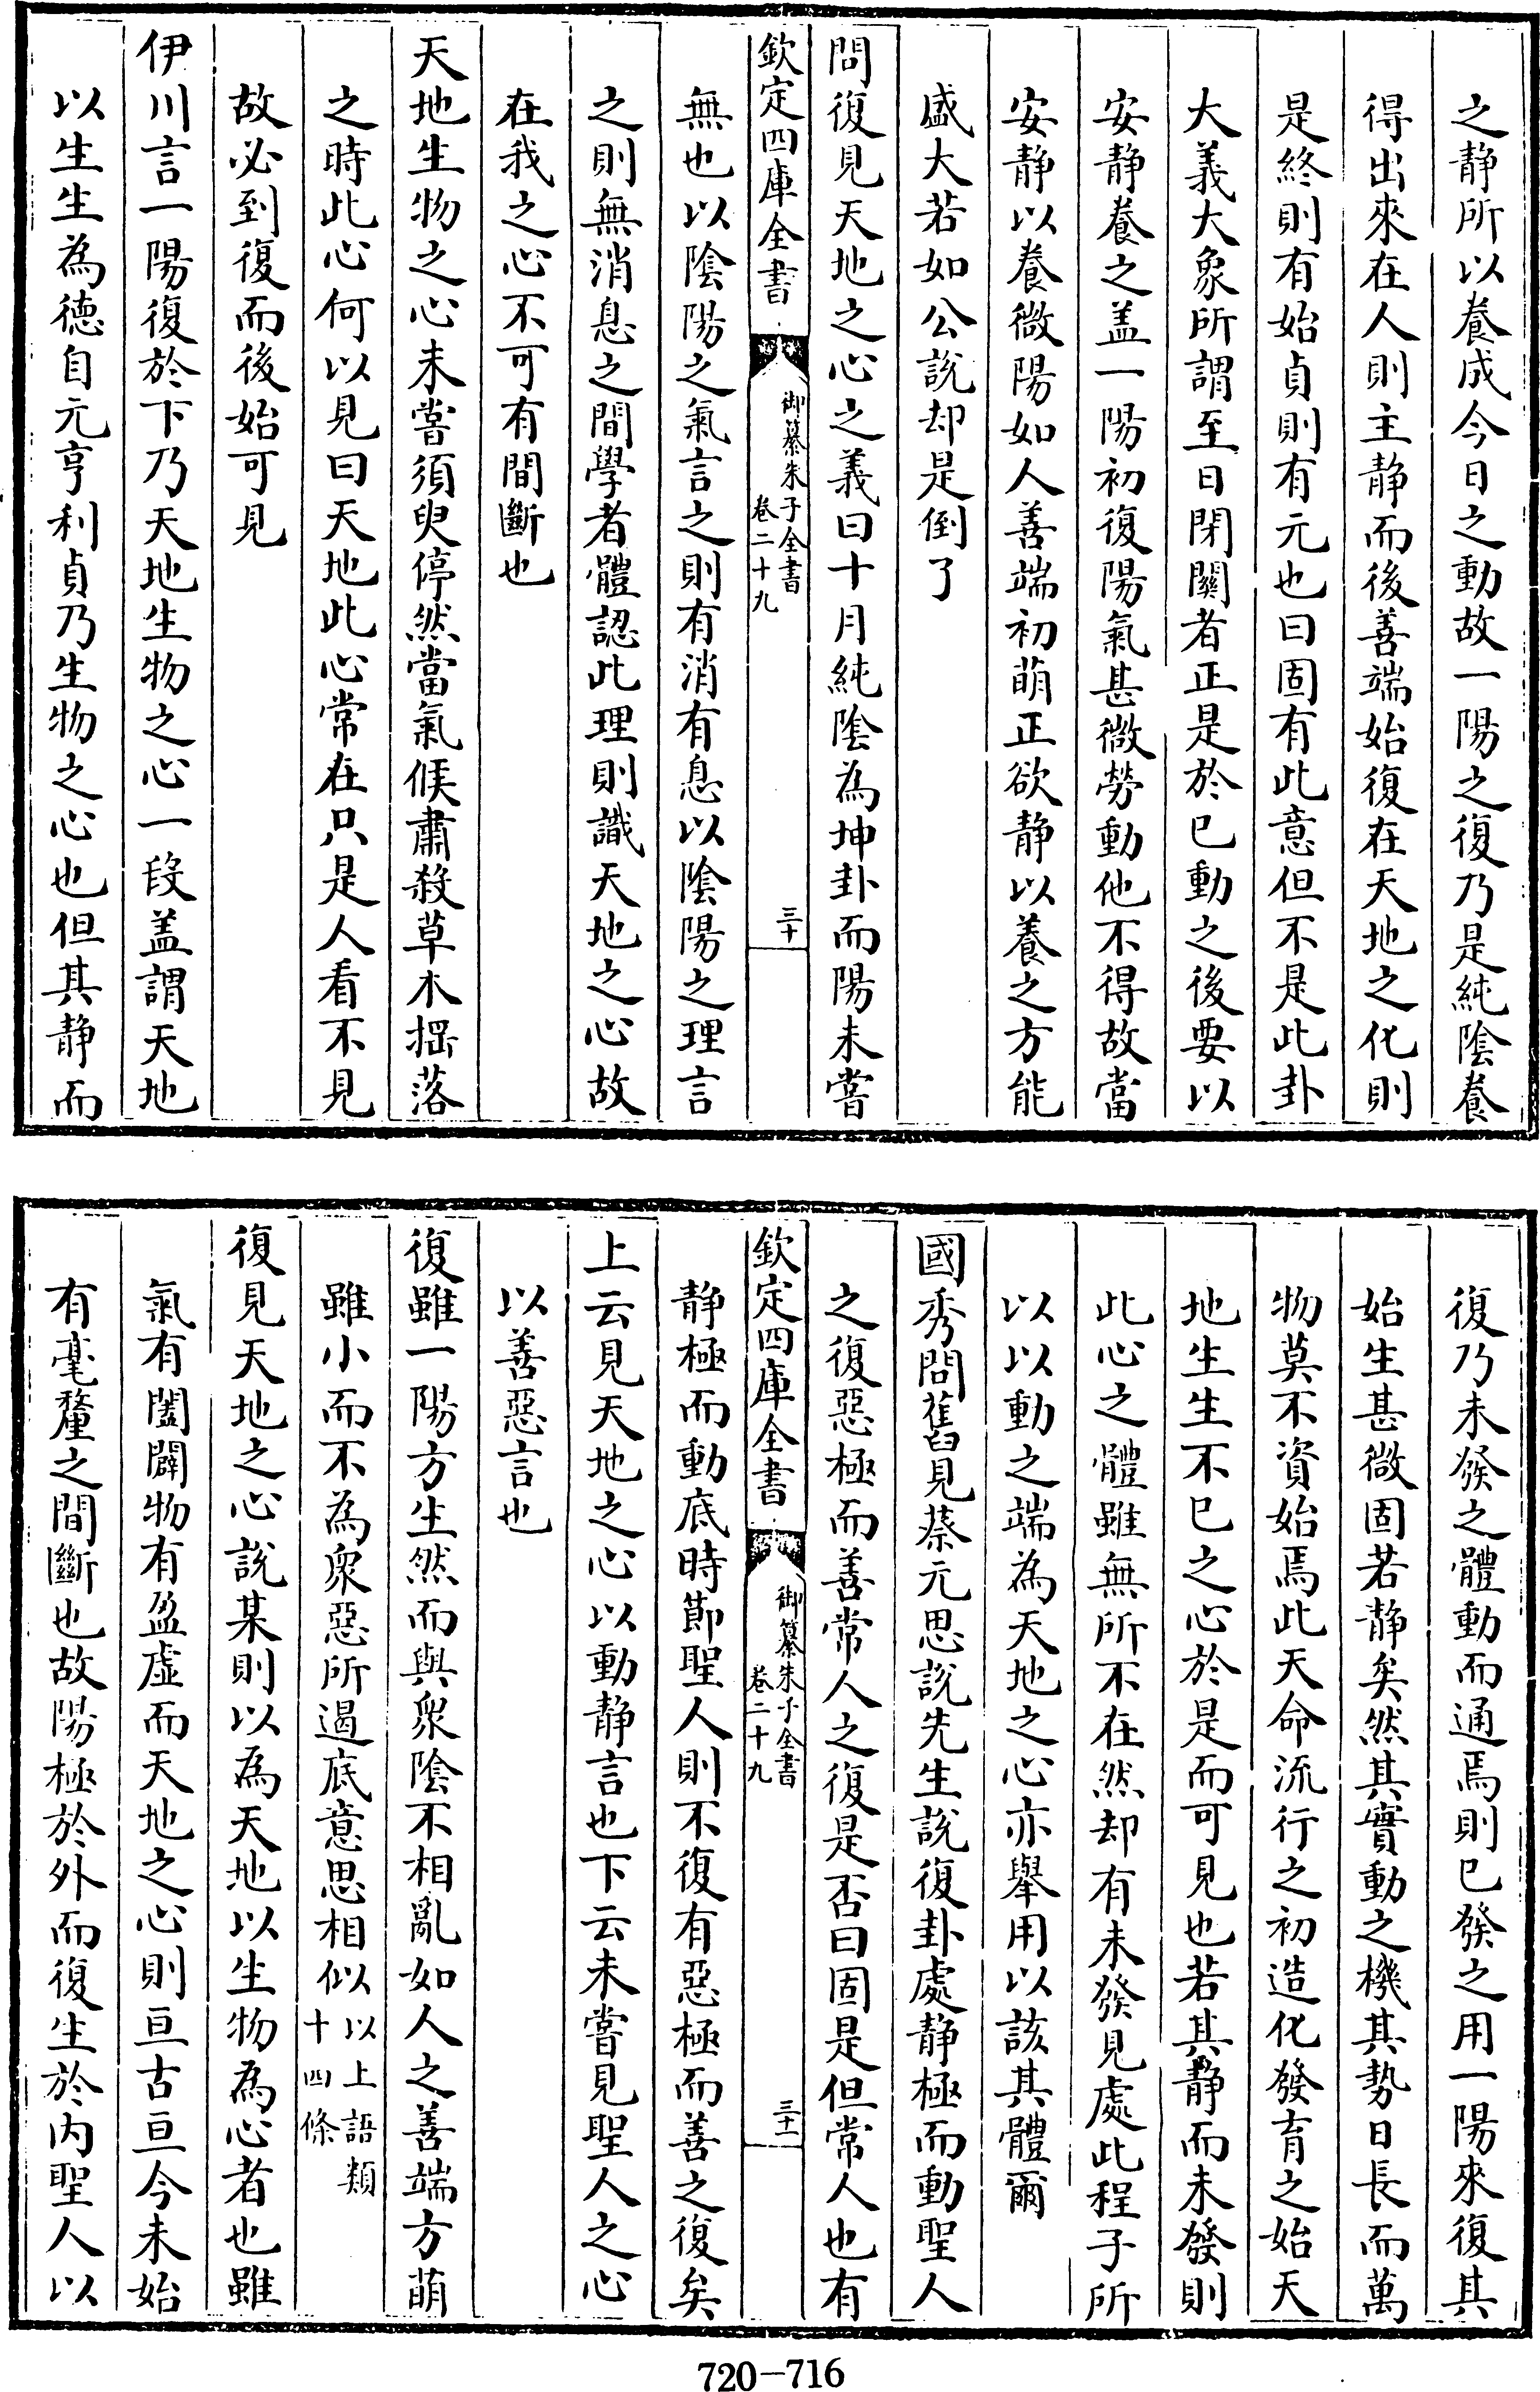 之静所以養成今日之動故一陽之復乃是純隂養
得出來在人則主静而後善端始復在天地之化則
是終則有始貞則有元也曰固有此意但不是此卦
大義大象所謂至日閉關者正是於已動之後要以
安静養之盖一陽初復陽氣甚微勞動他不得故當
安静以養微陽如人善端初萌正欲静以養之方能
盛大若如公說却是倒了
問復見天地之心之義曰十月純隂為坤卦而陽未嘗
欽定四庫全書
御纂朱子全書
卷二十九
三十
無也以隂陽之氣言之則有消有息以隂陽之理言
之則無消息之間學者體認此理則識天地之心故
在我之心不可有間斷也
天地生物之心未嘗須臾停然當氣候肅殺草木揺落
之時此心何以見曰天地此心常在只是人看不見
故必到復而後始可見
伊川言一陽復於下乃天地生物之心一段盖謂天地
以生生為德自元亨利貞乃生物之心也但其静而
復乃未發之體動而通焉則已發之用一陽來復其
始生甚微固若静矣然其實動之機其勢日長而萬
物莫不資始焉此天命流行之初造化發育之始天
地生生不已之心於是而可見也若其静而未發則
此心之體雖無所不在然却有未發見處此程子所
以以動之端為天地之心亦舉用以該其體爾
國秀問舊見蔡元思說先生說復卦處静極而動聖人
之復惡極而善常人之復是否曰固是但常人也有
欽定四庫全書
御纂朱子全書
卷二十九
三十一
静極而動底時節聖人則不復有惡極而善之復矣
上云見天地之心以動静言也下云未嘗見聖人之心
以善惡言也
復雖一陽方生然而與衆陰不相亂如人之善端方萌
雖小而不為衆惡所遏底意思相似以上語類十四條
復見天地之心說某則以為天地以生物為心者也雖
氣有闔闢物有盈虛而天地之心則亘古亘今未始
有毫釐之間斷也故陽極於外而復生於内聖人以
720-716